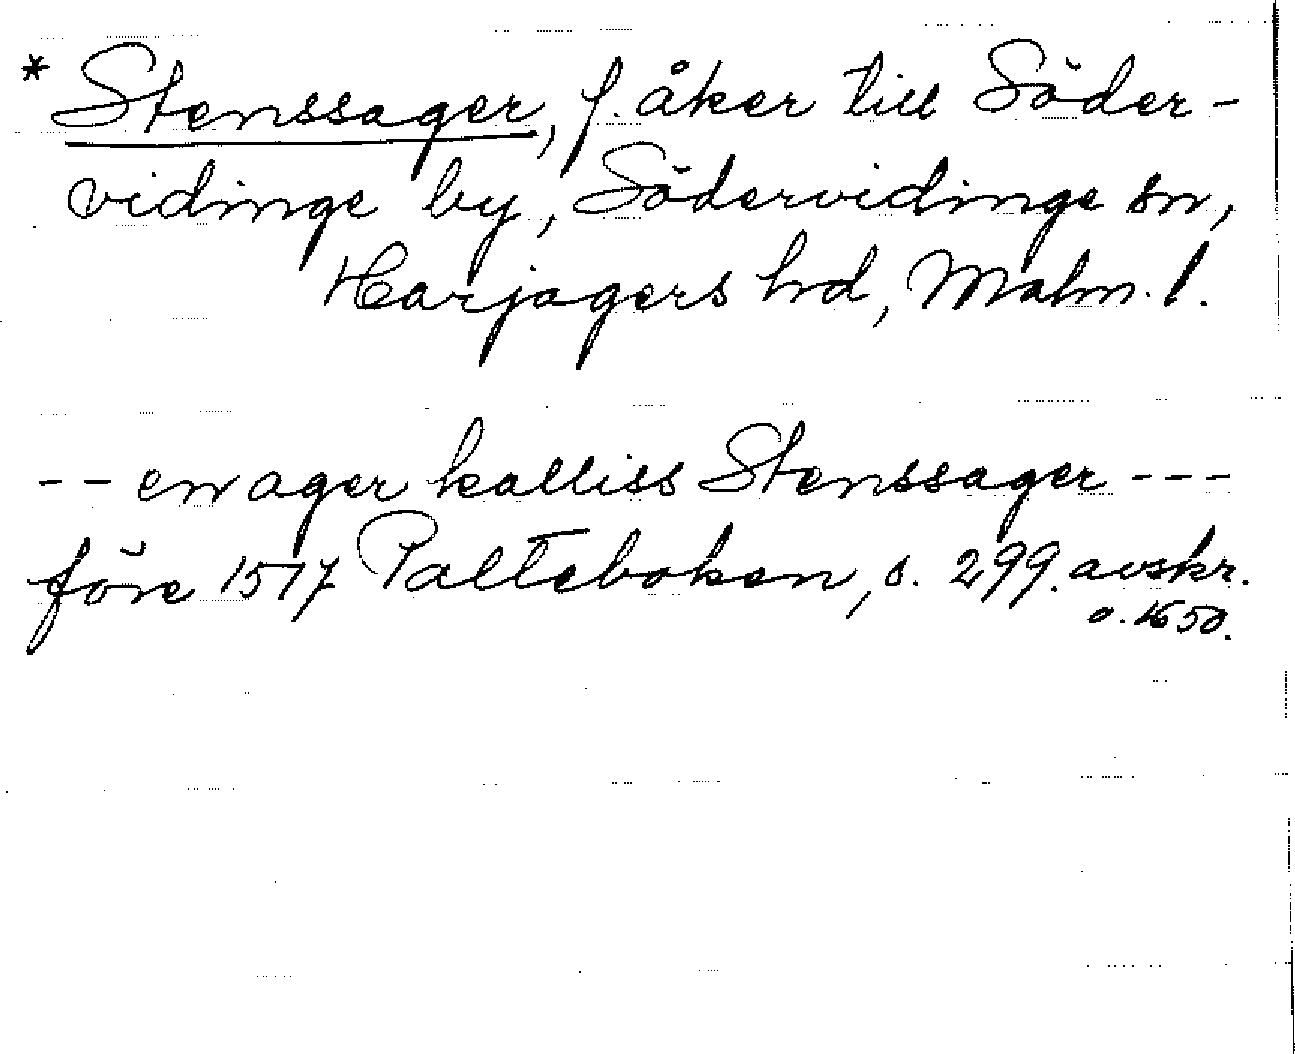 * Stenssager, f. åker till Söder-
vidinge by, Södervidinge sn,
Harjagers hd, Malm. l.
-- en ager kalliss Stenssager ---
före 1517 Palteboken, s. 299. avskr.
o. 1650.